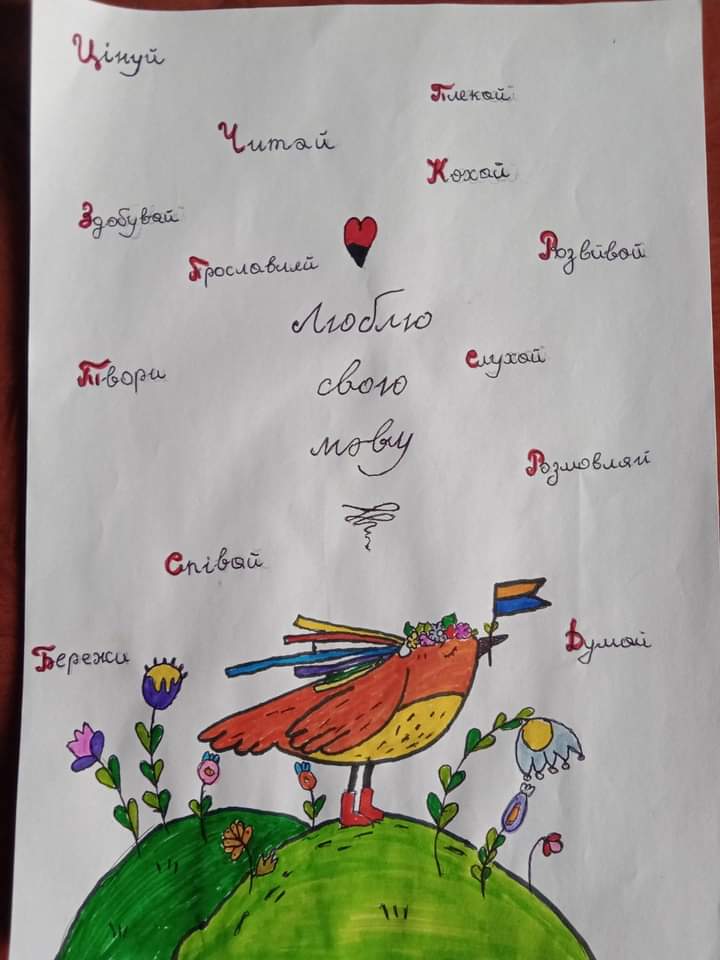 Цінуй
Плекай
Читай
Кохай
Здобувай
Прославляй
Розвивай
Люблю
свою
мову
Слухай
Твори
Розмовляй
Співай
Думай
Бережи